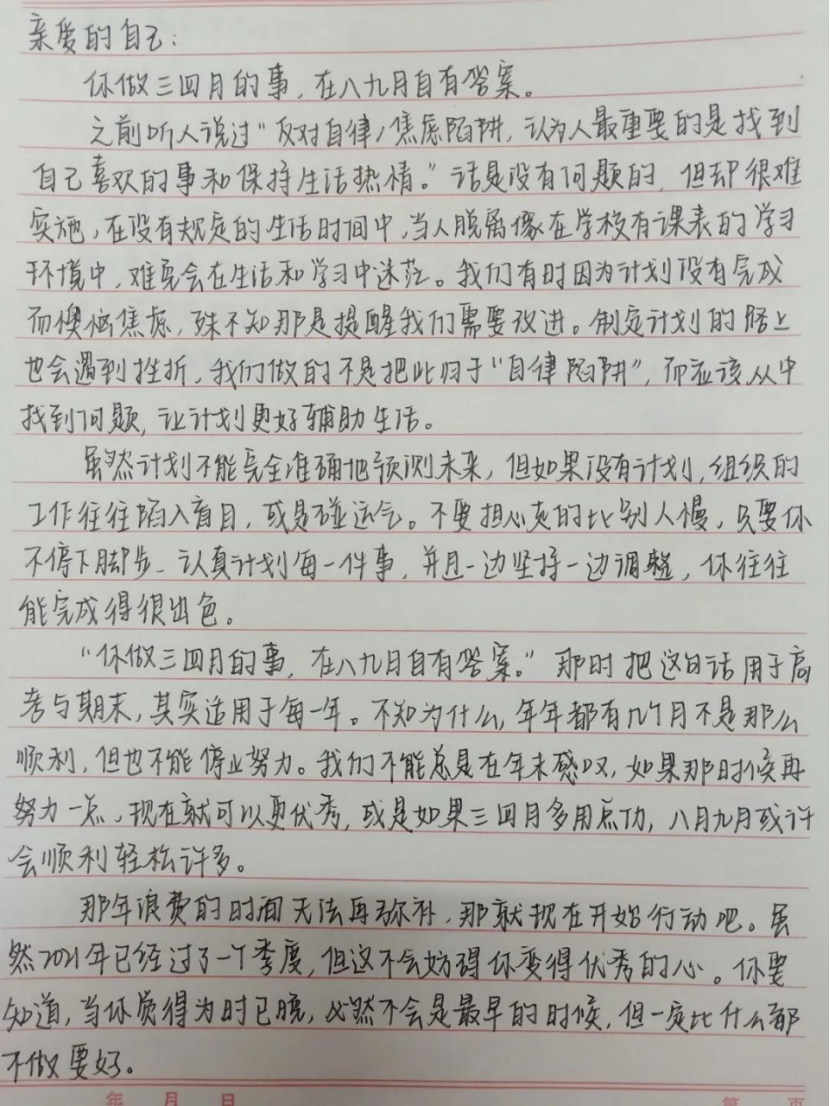 亲爱的自己：
你做三四月的事，在八九月自有答案。
之前听人说过“反对自律/焦虑陷阱，认为人最重要的是找到
自己喜欢的事和保持生活热情。”话是没有问题的，但却很难
实施，在没有规定的生活时间中，当人脱离像在学校有课表的学习
环境中，难免会在生活和学习中迷茫。我们有时因为计划没有完成
而懊恼焦虑，殊不知那是提醒我们需要改进。制定计划的路上
也会遇到挫折，我们做的不是把此归于“自律陷阱”，而应该从中
找到问题，让计划更好辅助生活。
虽然计划不能完全准确地预测未来，但如果没有计划，组织的
工作往往陷入盲目，或是碰运气。不要担心真的比别人慢，只要你
不停下脚步、认真计划每一件事，并且一边坚持一边调整，你往往
能完成得很出色。
“你做三四月的事，在八九月自有答案。”那时把这句话用于高
考与期末，其实适用于每一年。不知为什么，年年都有几个月不是那么
顺利，但也不能停止努力。我们不能总是在年末感叹，如果那时候再
努力一点，现在就可以更优秀，或是如果三四月多用点功，八月九月或许
会顺利轻松许多。
那年浪费的时间无法再弥补，那就现在开始行动吧。虽
然2021年已经过了一个季度，但这不会妨碍你变得优秀的心。你要
知道，当你觉得为时已晚，必然不会是最早的时候，但一定比什么都
不做要好。
年 月 日 第 页